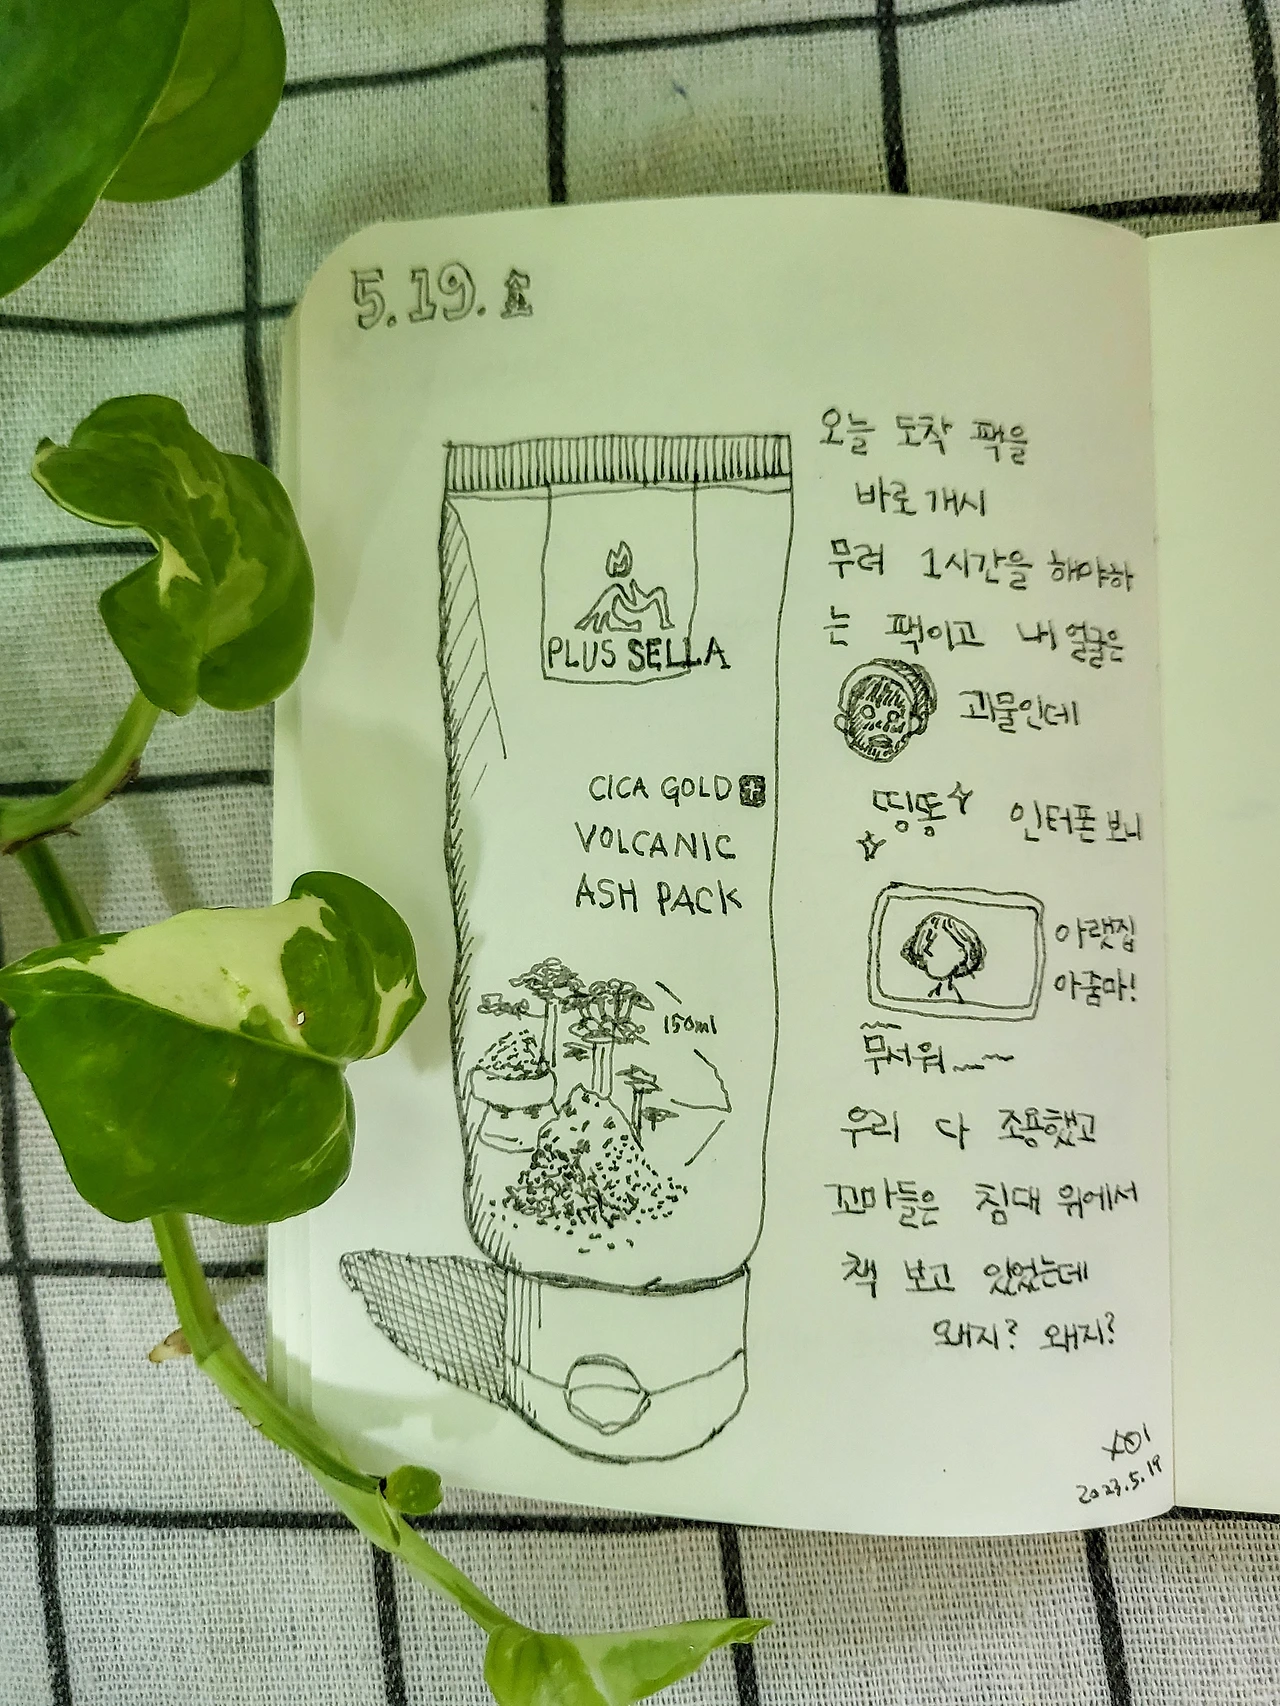 5.19.금
오늘 도착 팩을
바로 개시
무려 1시간을 해야하
는 팩이고 내 얼굴은
괴물인데
띵똥 인터폰 보니
아랫집
아줌마!
무서워~~
우리 다 조용했고
꼬마들은 침대 위에서
책 보고 있었는데
왜지? 왜지?
PLUS SELLA
CICA GOLD +
VOLCANIC
ASH PACK
150ml
2023.5.19